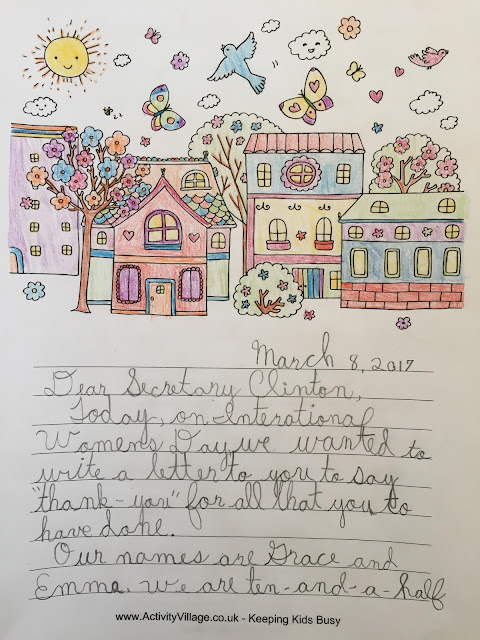 March 8, 2017
Dear Secretary Clinton,
Today, on Interational
Womens Day, we wanted to
write a letter to you to say
"thank-you" for all that you to
have done.
Our names are Grace and
Emma. We are ten-and-a-half
www.ActivityVillage.co.uk - Keeping Kids Busy